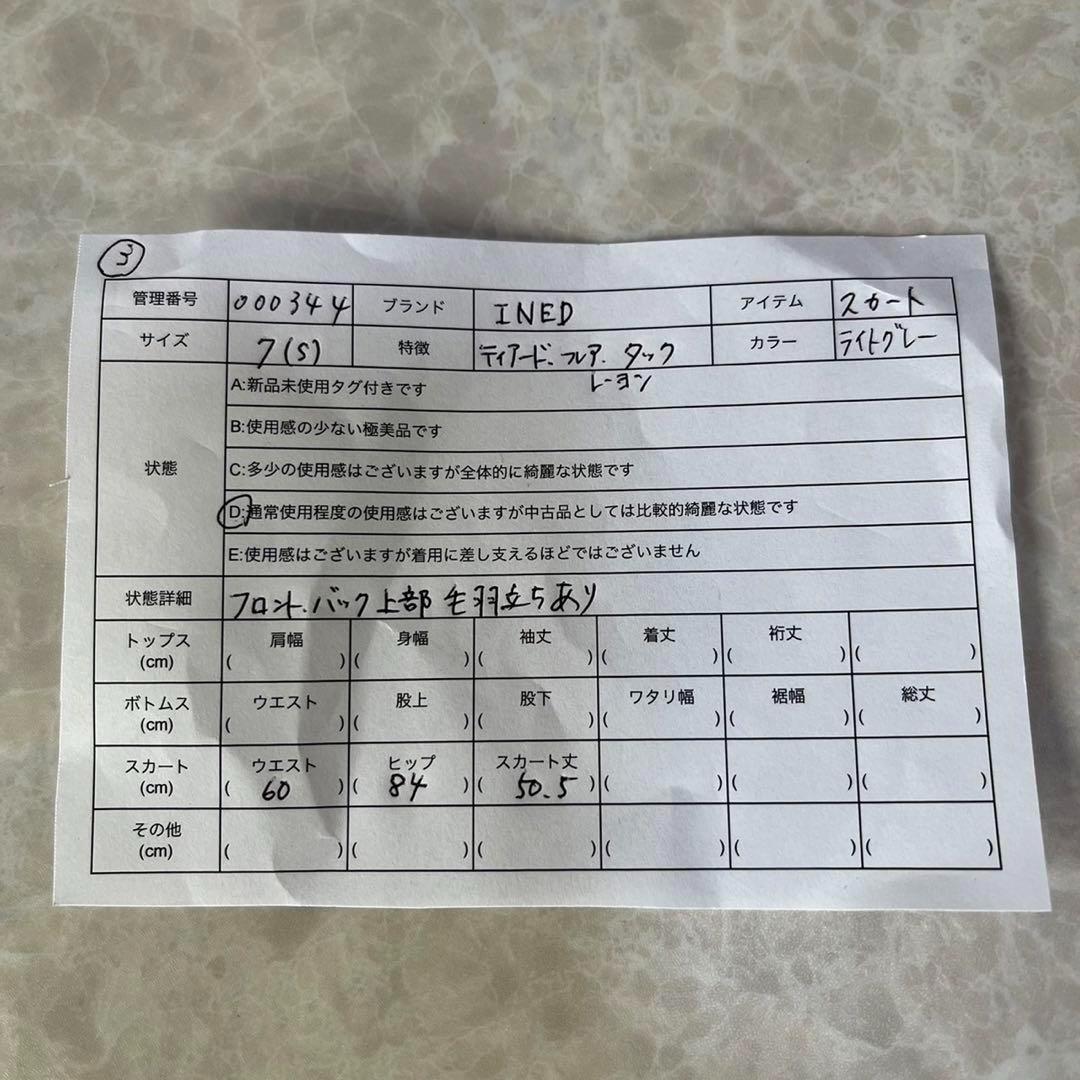 3
管理番号 000344 ブランド INED アイテム スカート
サイズ 7(S) 特徴 ティアード、フレア、タック カラー ライトグレー
レーヨン
状態
A:新品未使用タグ付きです
B:使用感の少ない極美品です
C:多少の使用感はございますが全体的に綺麗な状態です
D:通常使用程度の使用感はございますが中古品としては比較的綺麗な状態です
E:使用感はございますが着用に差し支えるほどではございません
状態詳細 フロント、バック上部 毛羽立ちあり
トップス 肩幅 身幅 袖丈 着丈 裄丈
(cm) ( ) ( ) ( ) ( ) ( ) ( )
ボトムス ウエスト 股上 股下 ワタリ幅 裾幅 総丈
(cm) ( ) ( ) ( ) ( ) ( ) ( )
スカート ウエスト ヒップ スカート丈
(cm) ( 60 ) ( 84 ) ( 50.5 ) ( ) ( ) ( )
その他
(cm) ( ) ( ) ( ) ( ) ( ) ( )